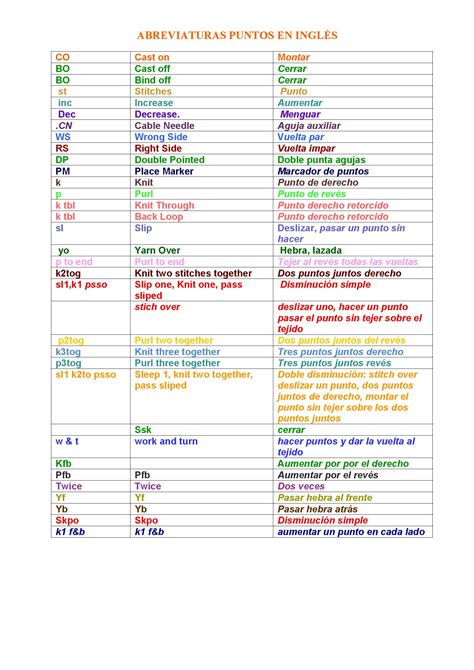 ABREVIATURAS PUNTOS EN INGLÉS
CO Cast on Montar
BO Cast off Cerrar
BO Bind off Cerrar
st Stitches Punto
inc Increase Aumentar
Dec Decrease. Menguar
.CN Cable Needle Aguja auxiliar
WS Wrong Side Vuelta par
RS Right Side Vuelta impar
DP Double Pointed Doble punta agujas
PM Place Marker Marcador de puntos
k Knit Punto de derecho
p Purl Punto de revés
k tbl Knit Through Punto derecho retorcido
k tbl Back Loop Punto derecho retorcido
sl Slip Deslizar, pasar un punto sin
hacer
yo Yarn Over Hebra, lazada
p to end Purl to end Tejer al revés todas las vueltas
k2tog Knit two stitches together Dos puntos juntos derecho
sl1,k1 psso Slip one, Knit one, pass Disminución simple
sliped
stich over deslizar uno, hacer un punto
pasar el punto sin tejer sobre el
tejido
p2tog Purl two together Dos puntos juntos del revés
k3tog Knit three together Tres puntos juntos derecho
p3tog Purl three together Tres puntos juntos revés
sl1 k2to psso Sleep 1, knit two together, Doble disminución: stitch over
pass sliped deslizar un punto, dos puntos
juntos de derecho, montar el
punto sin tejer sobre los dos
puntos juntos
Ssk cerrar
w & t work and turn hacer puntos y dar la vuelta al
tejido
Kfb Aumentar por por el derecho
Pfb Pfb Aumentar por el revés
Twice Twice Dos veces
Yf Yf Pasar hebra al frente
Yb Yb Pasar hebra atrás
Skpo Skpo Disminución simple
k1 f&b k1 f&b aumentar un punto en cada lado